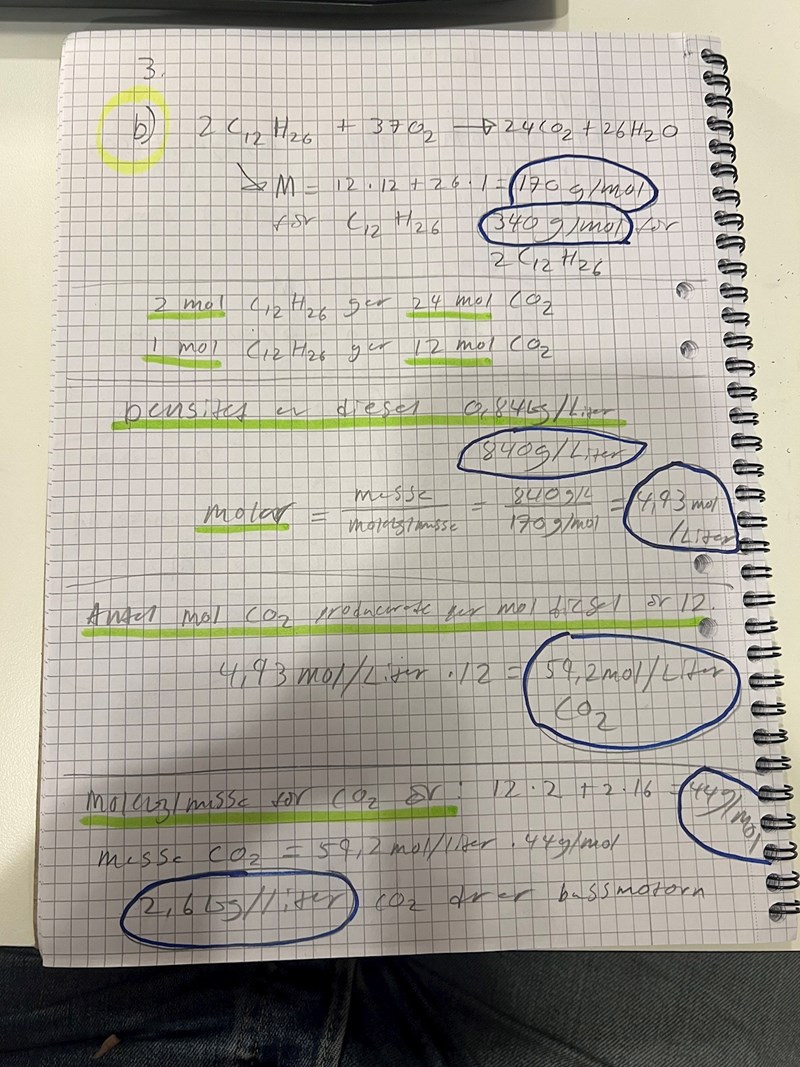 3.
b) 2 C₁₂H₂₆ + 37O₂ → 24CO₂ + 26H₂O
↘ M = 12 · 12 + 26 · 1 = 170 g/mol
for C₁₂H₂₆ 340 g/mol for
2 C₁₂H₂₆
2 mol C₁₂H₂₆ ger 24 mol CO₂
1 mol C₁₂H₂₆ ger 12 mol CO₂
Densitet er diesel 0,84kg/Liter
840g/Liter
molar = masse / molarmasse = 840g/L / 170g/mol = 4,93 mol
/Liter
Antal mol CO₂ producerete per mol diesel er 12.
4,93 mol/Liter · 12 = 59,2mol/Liter
CO₂
for CO₂ er: 12 · 2 + 2 · 16 = 44g/mol
masse CO₂ = 59,2 mol/liter · 44g/mol
2,6 kg/Liter CO₂ drar bussmotorn